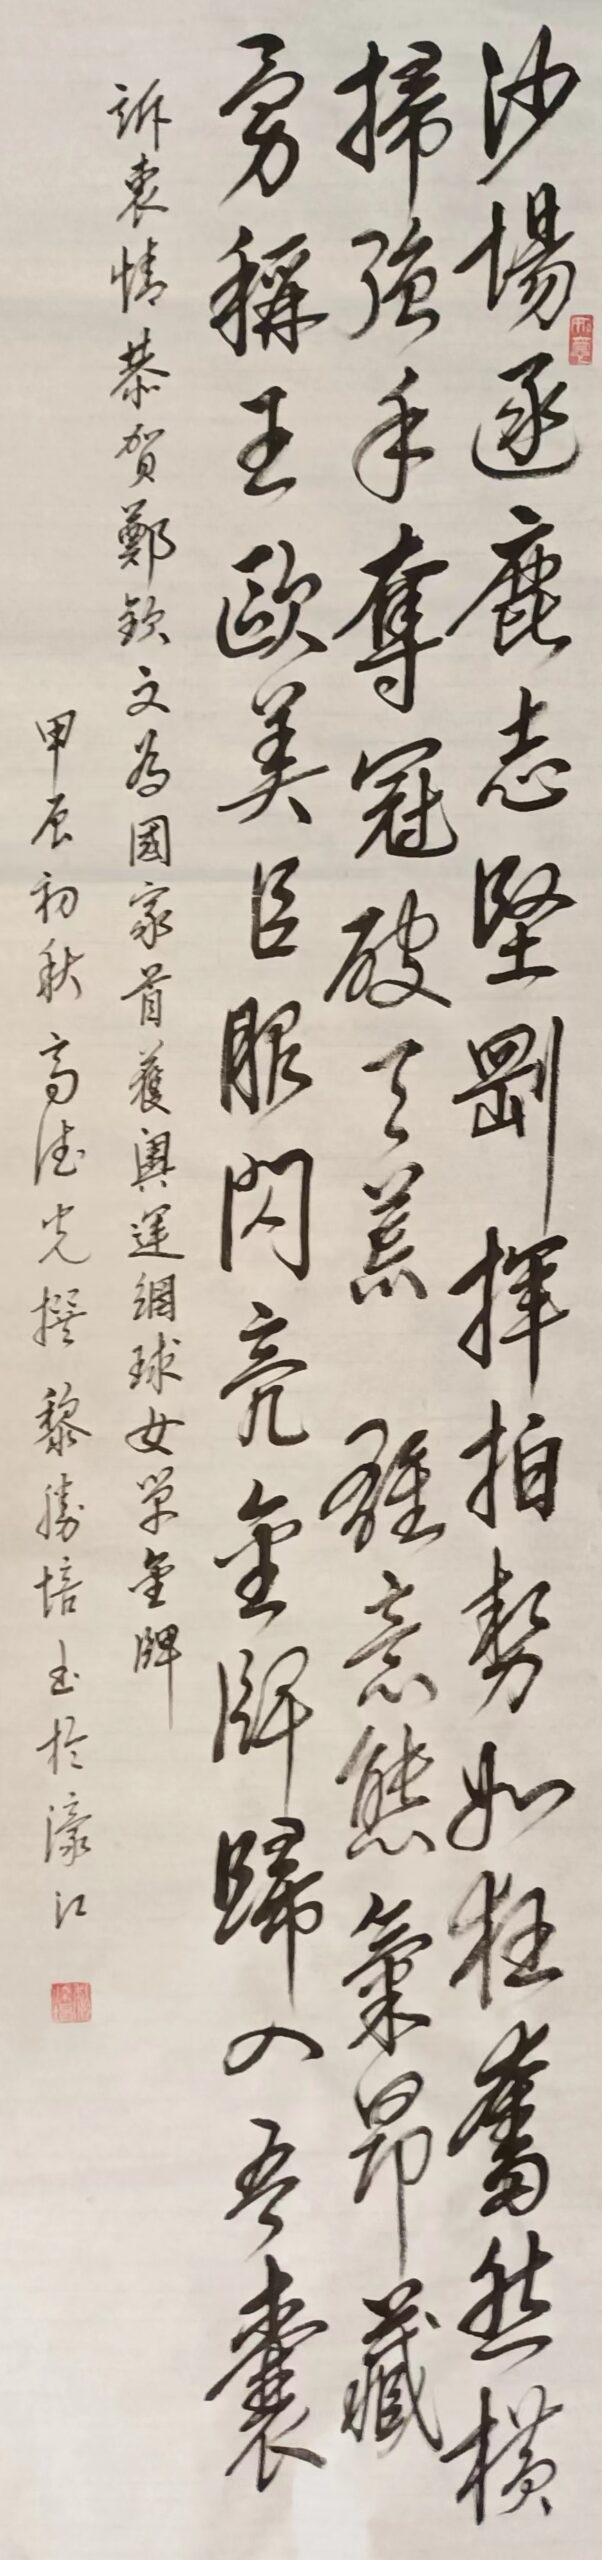 沙場逐鹿志堅剛揮拍勢如狂奮然橫
掃強手奪冠破天荒 雄意態氣昂藏
勇稱王歐美臣服閃亮金牌歸入吾囊
訴衷情恭賀鄭欽文為國家首獲奧運網球女單金牌
甲辰初秋高德光撰黎勝培書於濠江